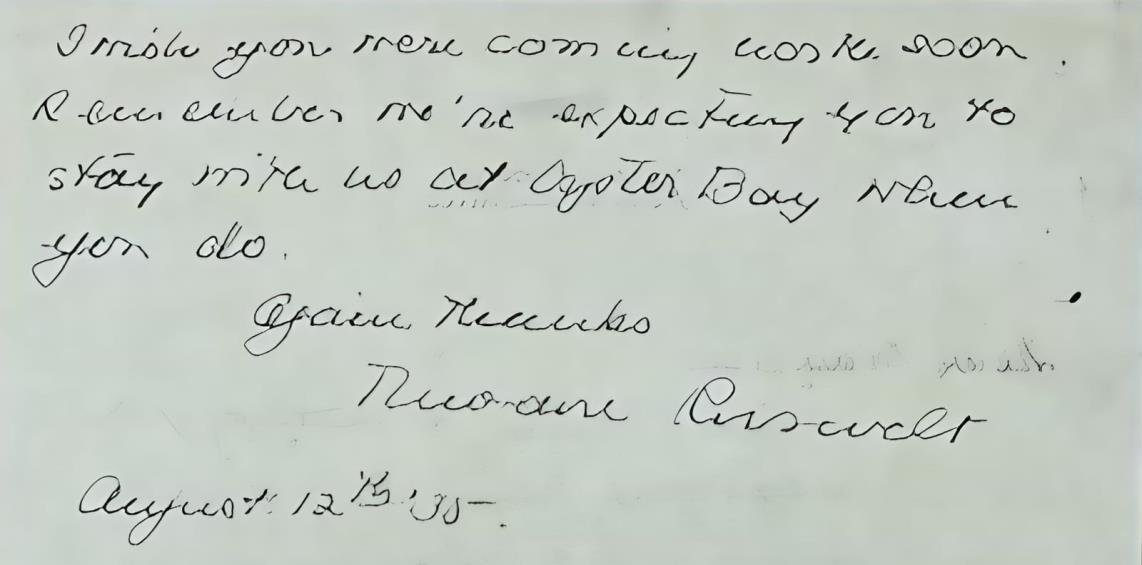 I wish you were coming back soon.
Remember we're expecting you to
stay with us at Oyster Bay when
you do.
Again thanks
Theodore Roosevelt
August 12th '35.